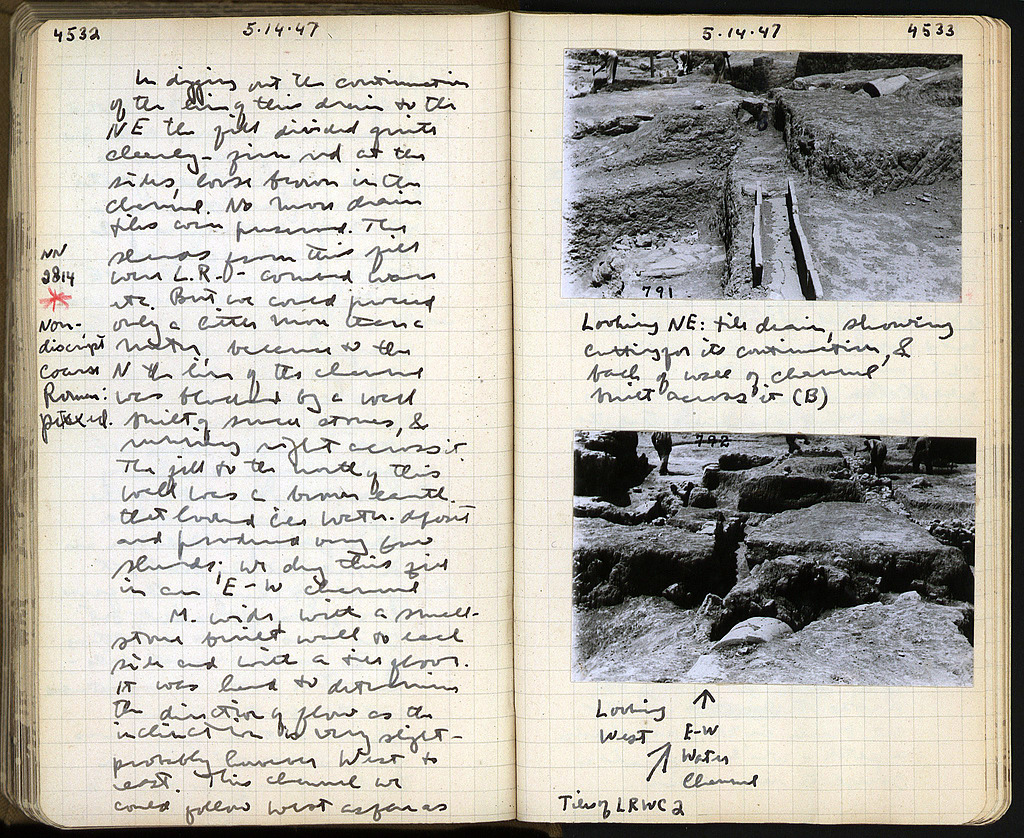 4532
5.14.47
In digging out the continuation
of the line of this drain to the
NE the fill divided quite
cleanly - firm red at the
sides, loose brown in the
channel. No more drain
tiles were preserved. The
sherds from this fill
were L.R. - combed ware
etc. But we could proceed
only a little more than a
meter, because to the
N the line of the channel
was blocked by a wall
built of small stones, &
running right across it.
The fill to the north of this
wall was a brown earth
that looked like water-deposit
and produced very few
sherds; we dug this fill
in an E-W channel
M. wide, with a small-
stone built wall to each
side and with a tile floor.
It was hard to determine
the direction of flow as the
inclination is very slight -
probably however West to
east. This channel we
could follow west as far as
NN
2814
Non-
discript
coarse
Roman:
5.14.47
4533
791
Looking NE: tile drain, showing
cutting for its continuation, &
back of wall of channel
built across it (B)
792
Looking
West
E-W
Water
Channel
Tiles of LRWC 2